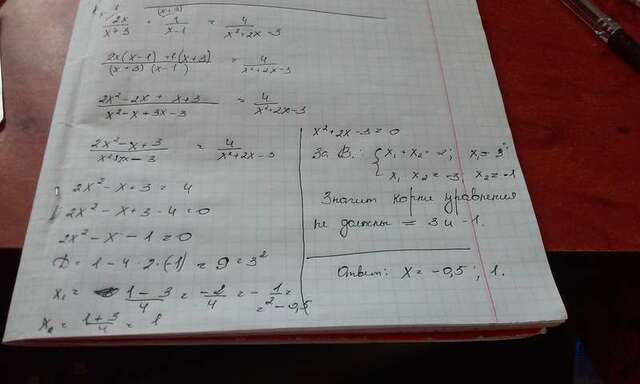 (x+3)
2x/(x+3) + 1/(x-1) = 4/(x²+2x-3)
(2x(x-1)+1(x+3))/((x+3)(x-1)) = 4/(x²+2x-3)
(2x²-2x+x+3)/(x²-x+3x-3) = 4/(x²+2x-3)
(2x²-x+3)/(x²+2x-3) = 4/(x²+2x-3)
2x²-x+3=4
2x²-x+3-4=0
2x²-x-1=0
D=1-4·2·(-1)=9=3²
x₁= (1-3)/4 = -2/4 = -1/2 =
= -0,5
x₂= (1+3)/4 = 1
x²+2x-3=0
За В.: { x₁+x₂=-2; x₁=3
x₁ x₂=-3 x₂=-1
Значит корни уравнения
не должны = 3 и -1.
Ответ: x=-0,5; 1.